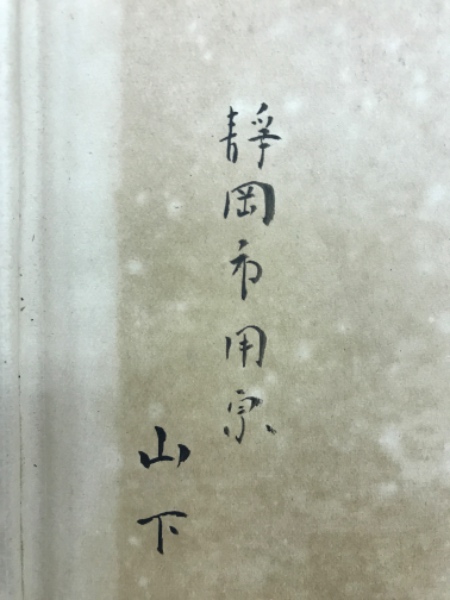 靜岡市用宗
山下